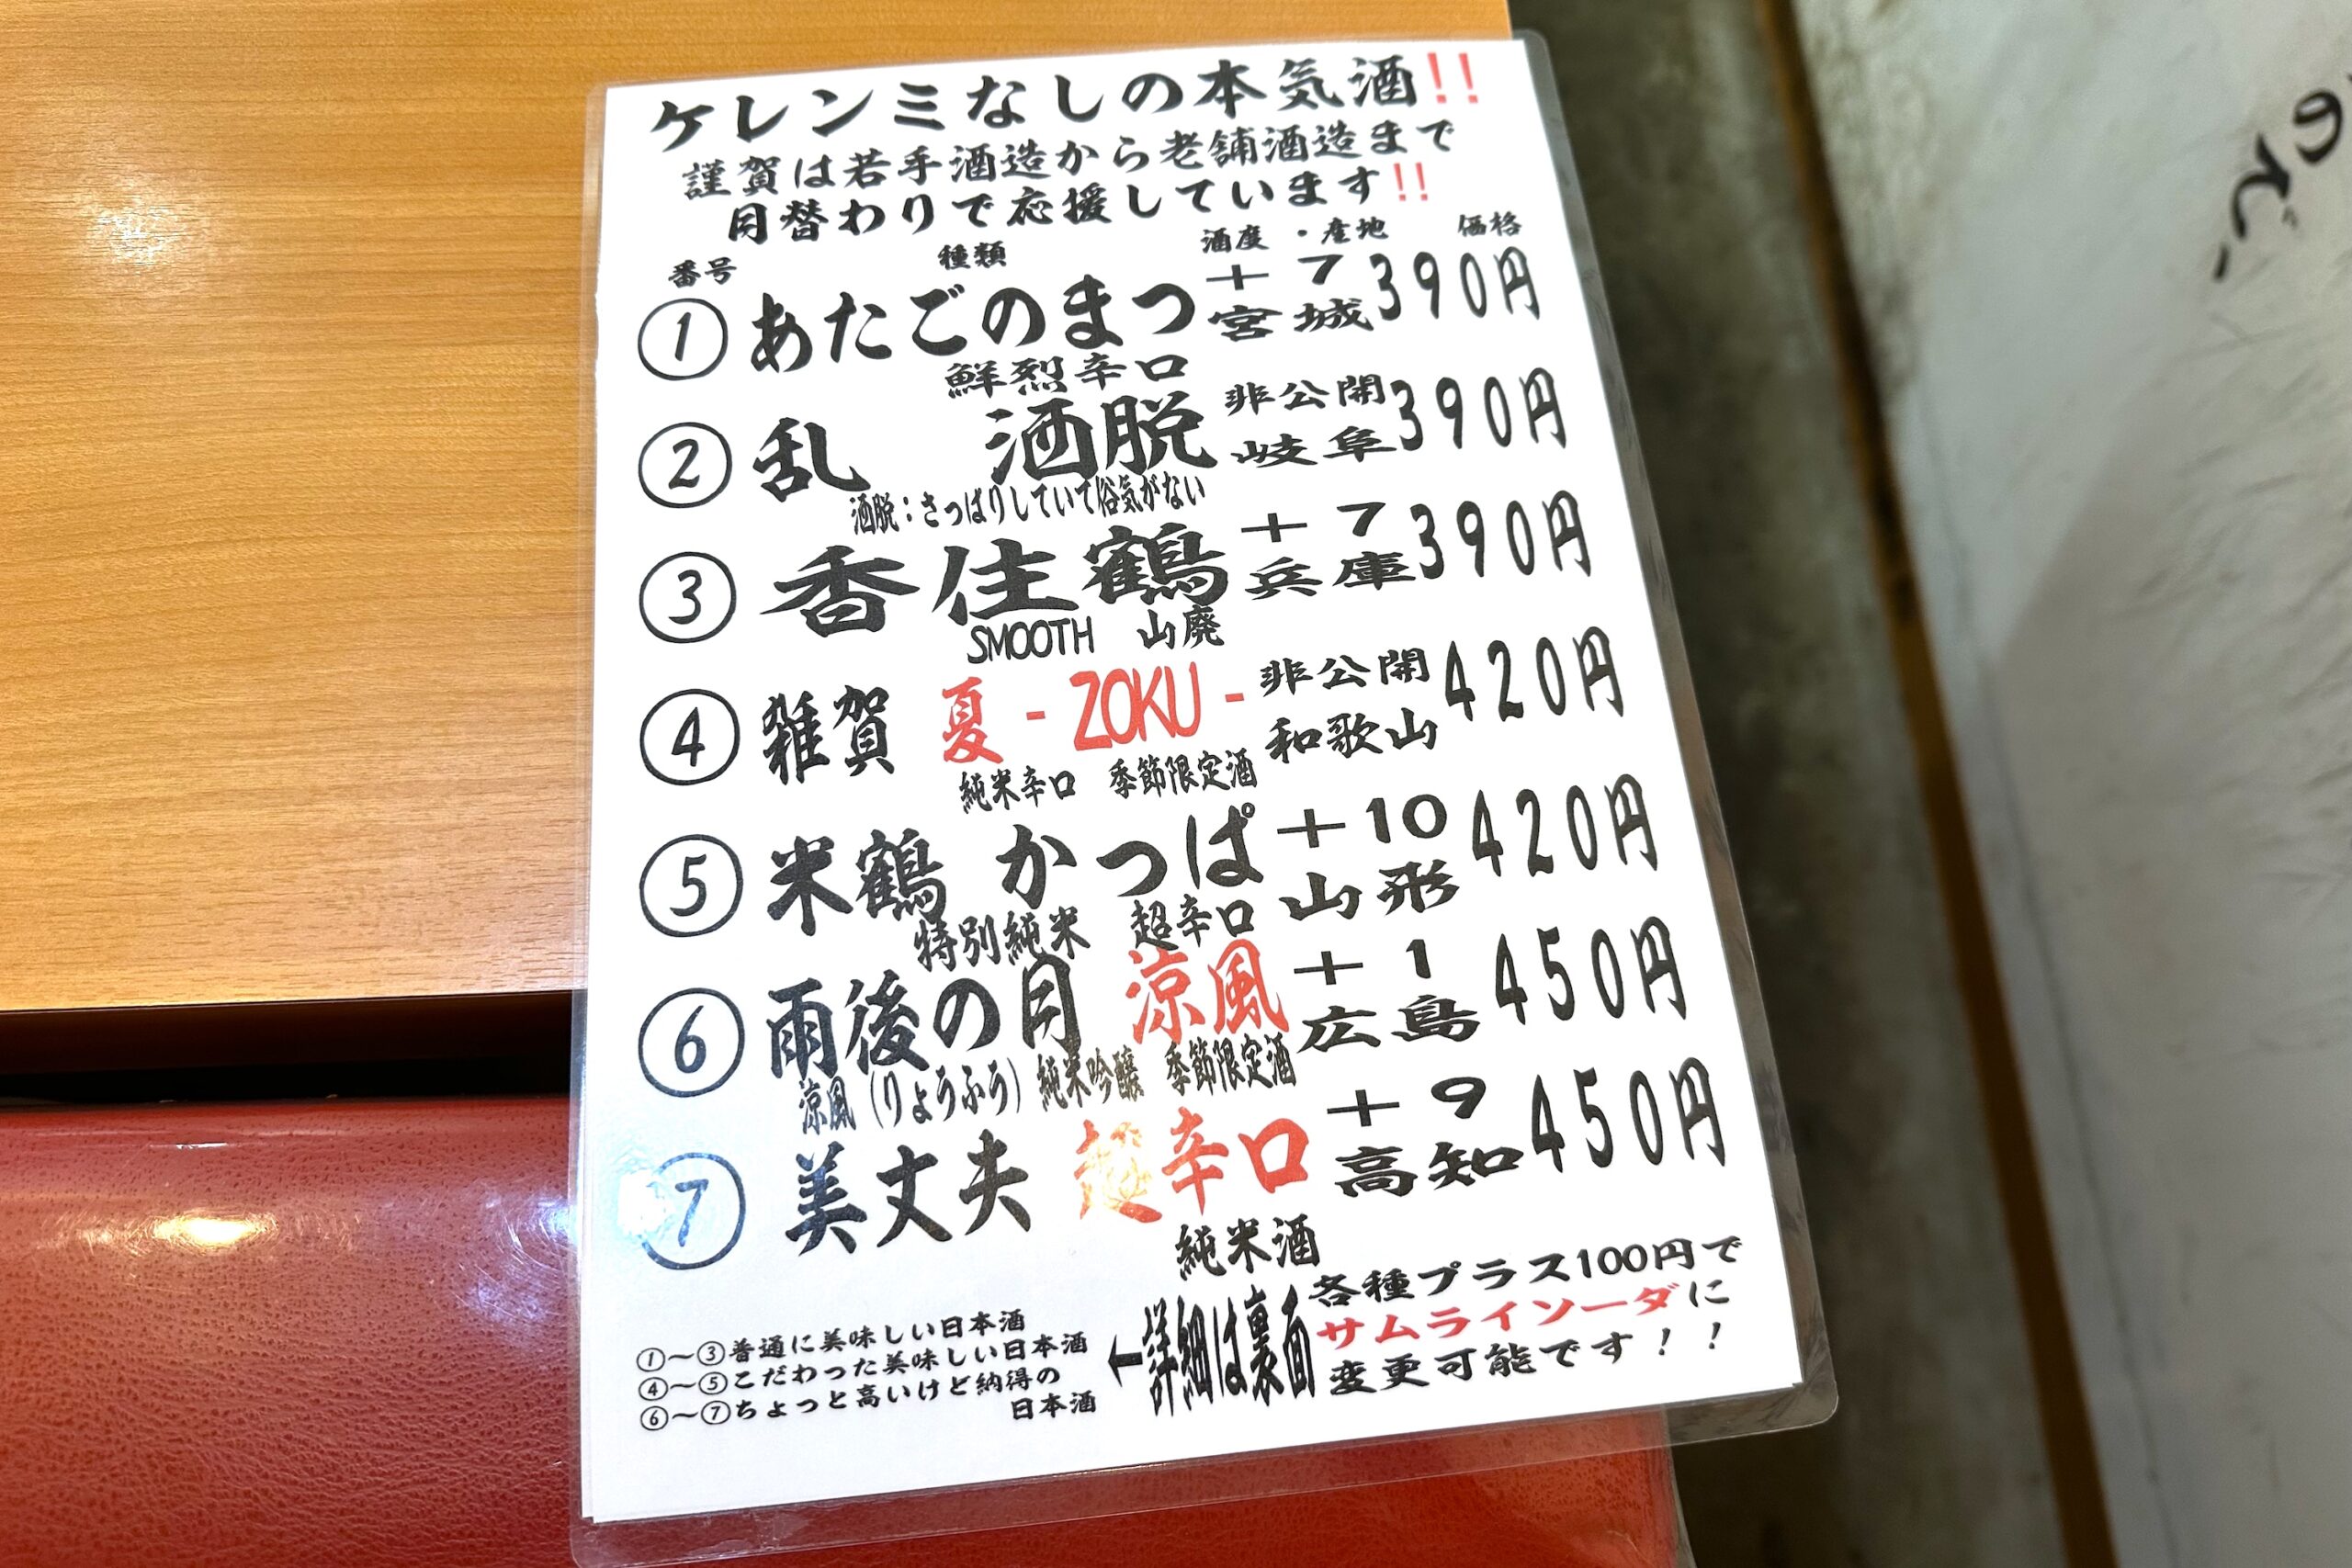 ケレンミなしの本気酒!!
謹賀は若手酒造から老舗酒造まで
月替わりで応援しています!!
番号 種類 酒度・産地 価格
① あたごのまつ +7 390円
鮮烈辛口 宮城
② 乱 洒脱 非公開 390円
洒脱：さっぱりしていて俗気がない 岐阜
③ 香住鶴 +7 390円
SMOOTH 山廃 兵庫
④ 雑賀 夏-ZOKU- 非公開 420円
純米辛口 季節限定酒 和歌山
⑤ 米鶴 かっぱ +10 420円
特別純米 超辛口 山形
⑥ 雨後の月 涼風 +1 450円
涼風（りょうふう） 純米吟醸 季節限定酒 広島
⑦ 美丈夫 超辛口 +9 450円
純米酒 高知
①～③普通に美味しい日本酒
④～⑤こだわった美味しい日本酒
⑥～⑦ちょっと高いけど納得の
日本酒
←詳細は裏面
各種プラス100円で
サムライソーダに
変更可能です！！
ので、